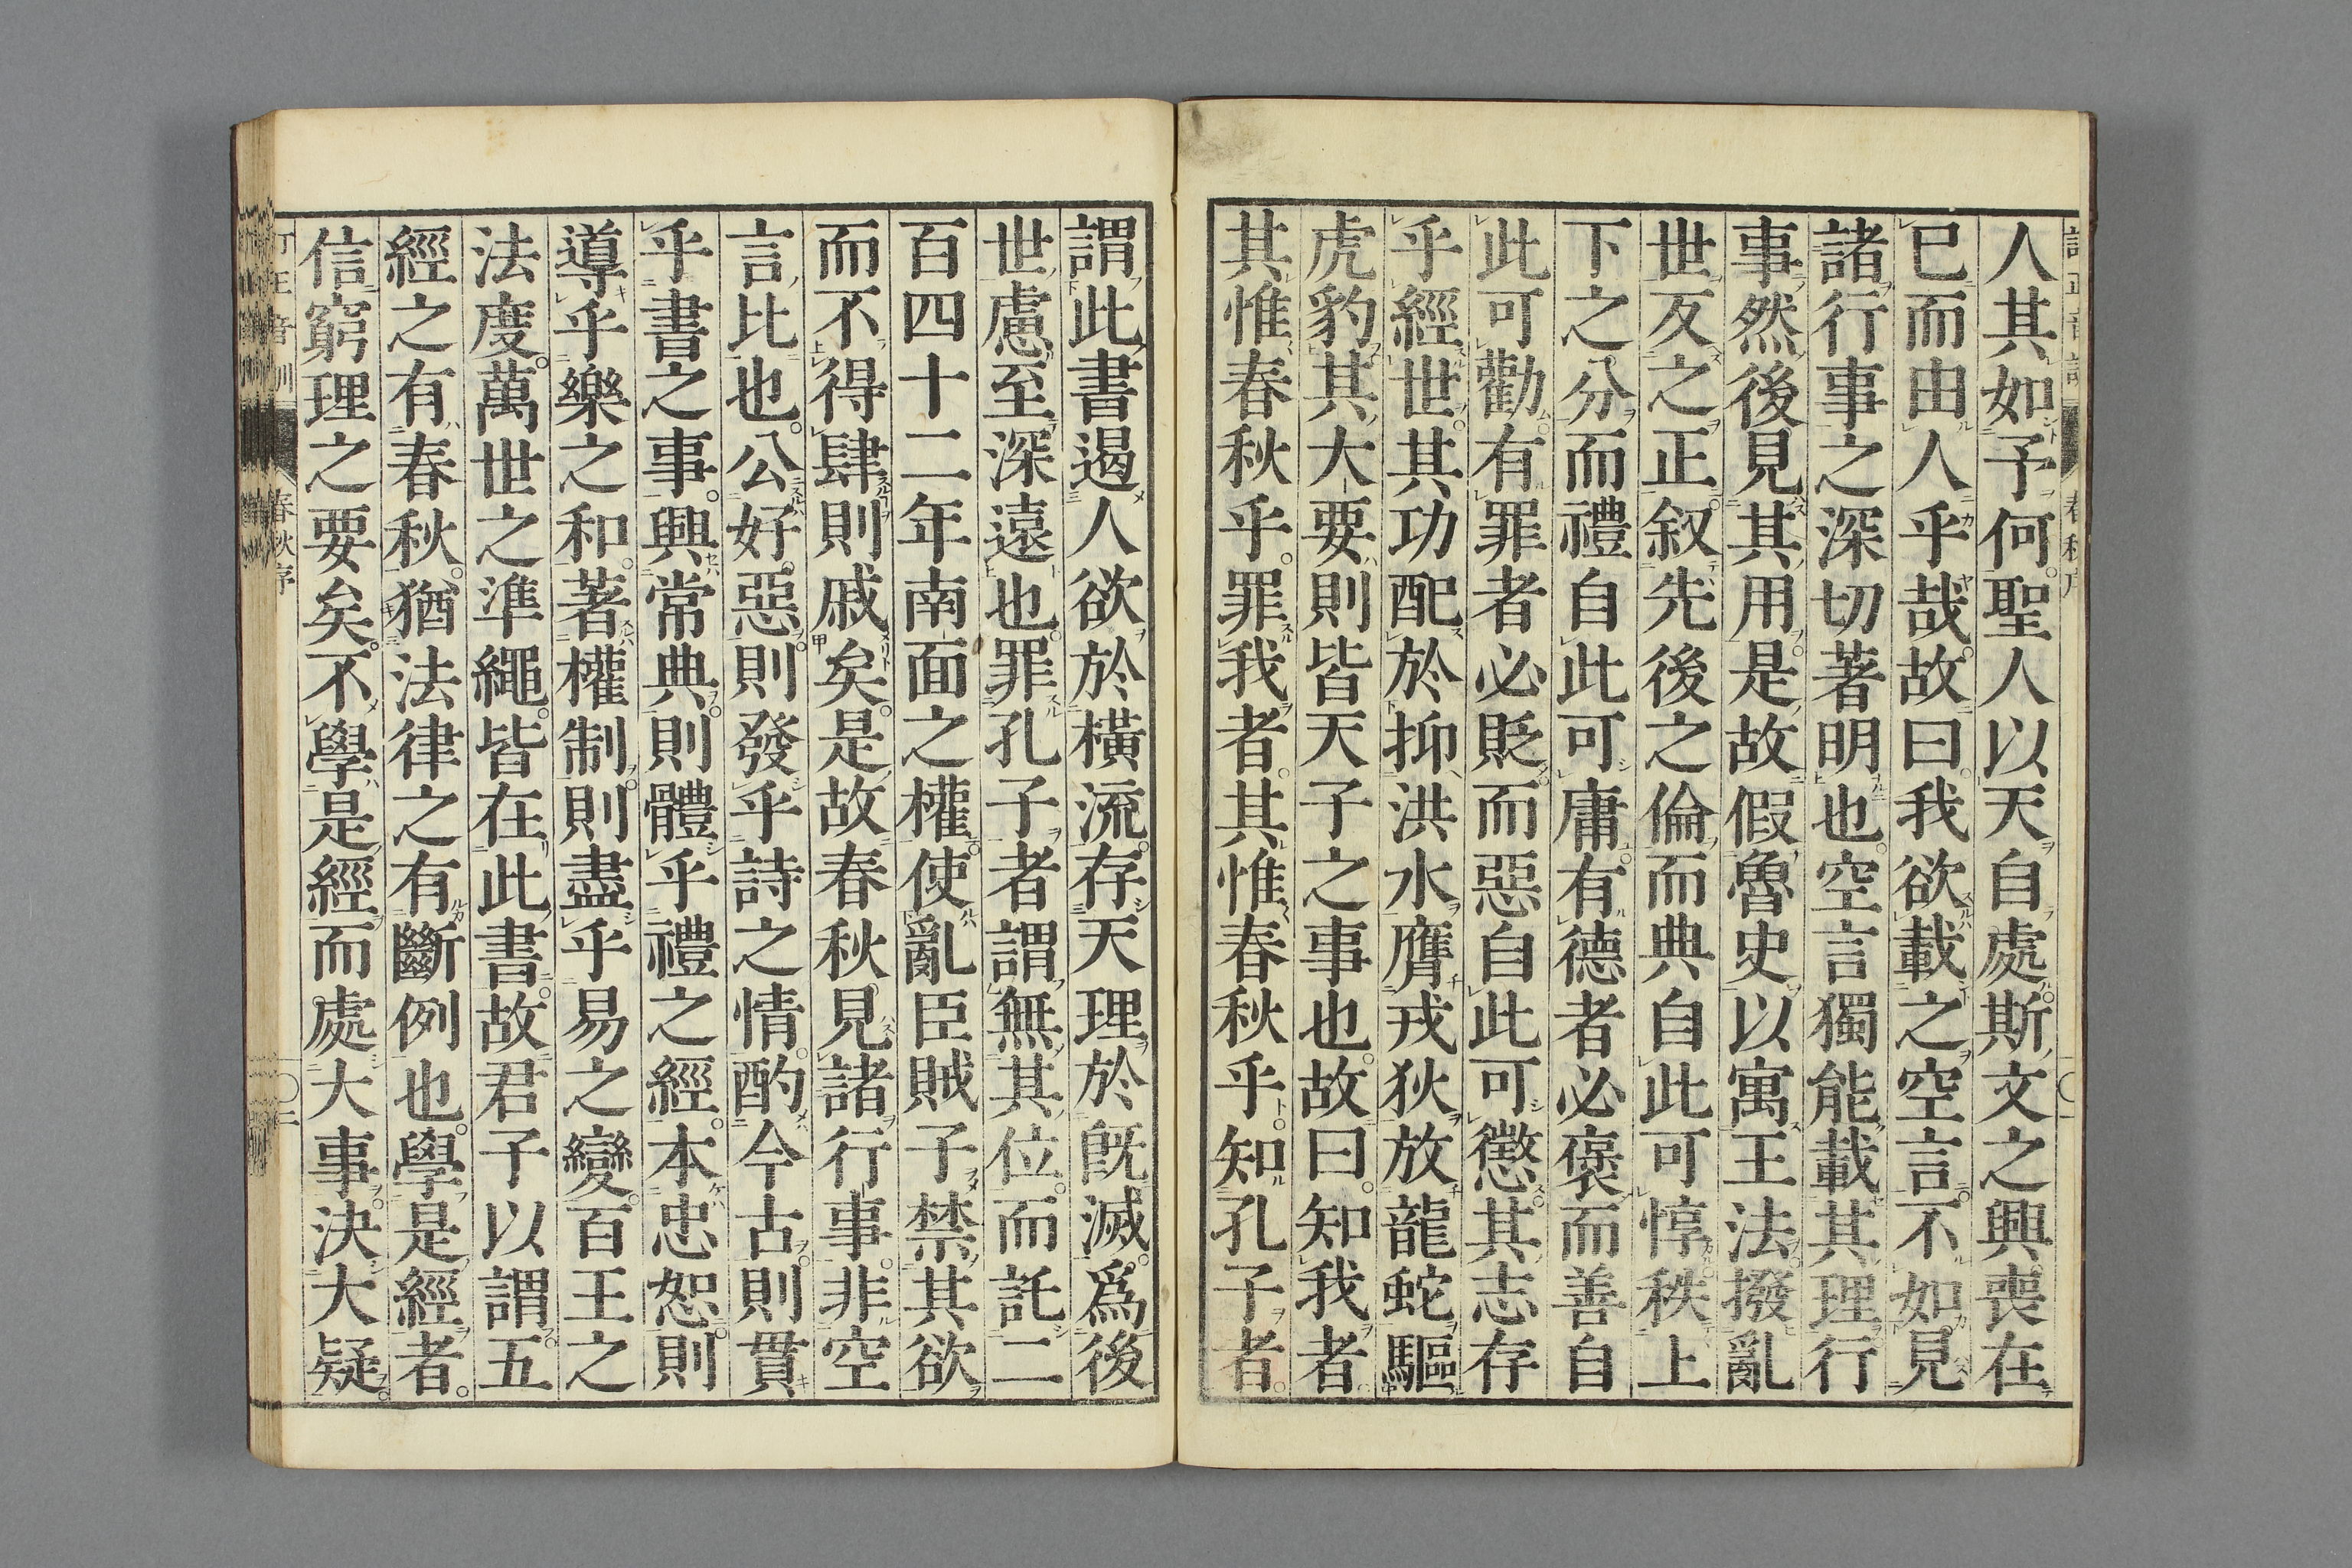 人其如予何聖人以天自處斯文之興喪在
已而由人乎哉故曰我欲載之空言不如見
諸行事之深切著明也空言獨能載其理行
事然後見其用是故假魯史以寓王法撥亂
世反之正叙先後之倫而典自此可惇秩上
下之分而禮自此可庸有德者必褒而善自
此可勸有罪者必貶而惡自此可懲其志存
乎經世其功配於抑洪水膺戎狄放龍蛇驅
虎豹其大要則皆天子之事也故曰知我者
其惟春秋乎罪我者其惟春秋乎知孔子者
謂此書遏人欲於橫流存天理於既滅爲後
世慮至深遠也罪孔子者謂無其位而託二
百四十二年南面之權使亂臣賊子禁其欲
而不得肆則戚矣是故春秋見諸行事非空
言比也公好惡則發乎詩之情酌今古則貫
乎書之事興常典則體乎禮之經本忠恕則
導乎樂之和著權制則盡乎易之變百王之
法度萬世之準繩皆在此書故君子以謂五
經之有春秋猶法律之有斷例也學是經者
信窮理之要矣不學是經而處大事決大疑
春秋序